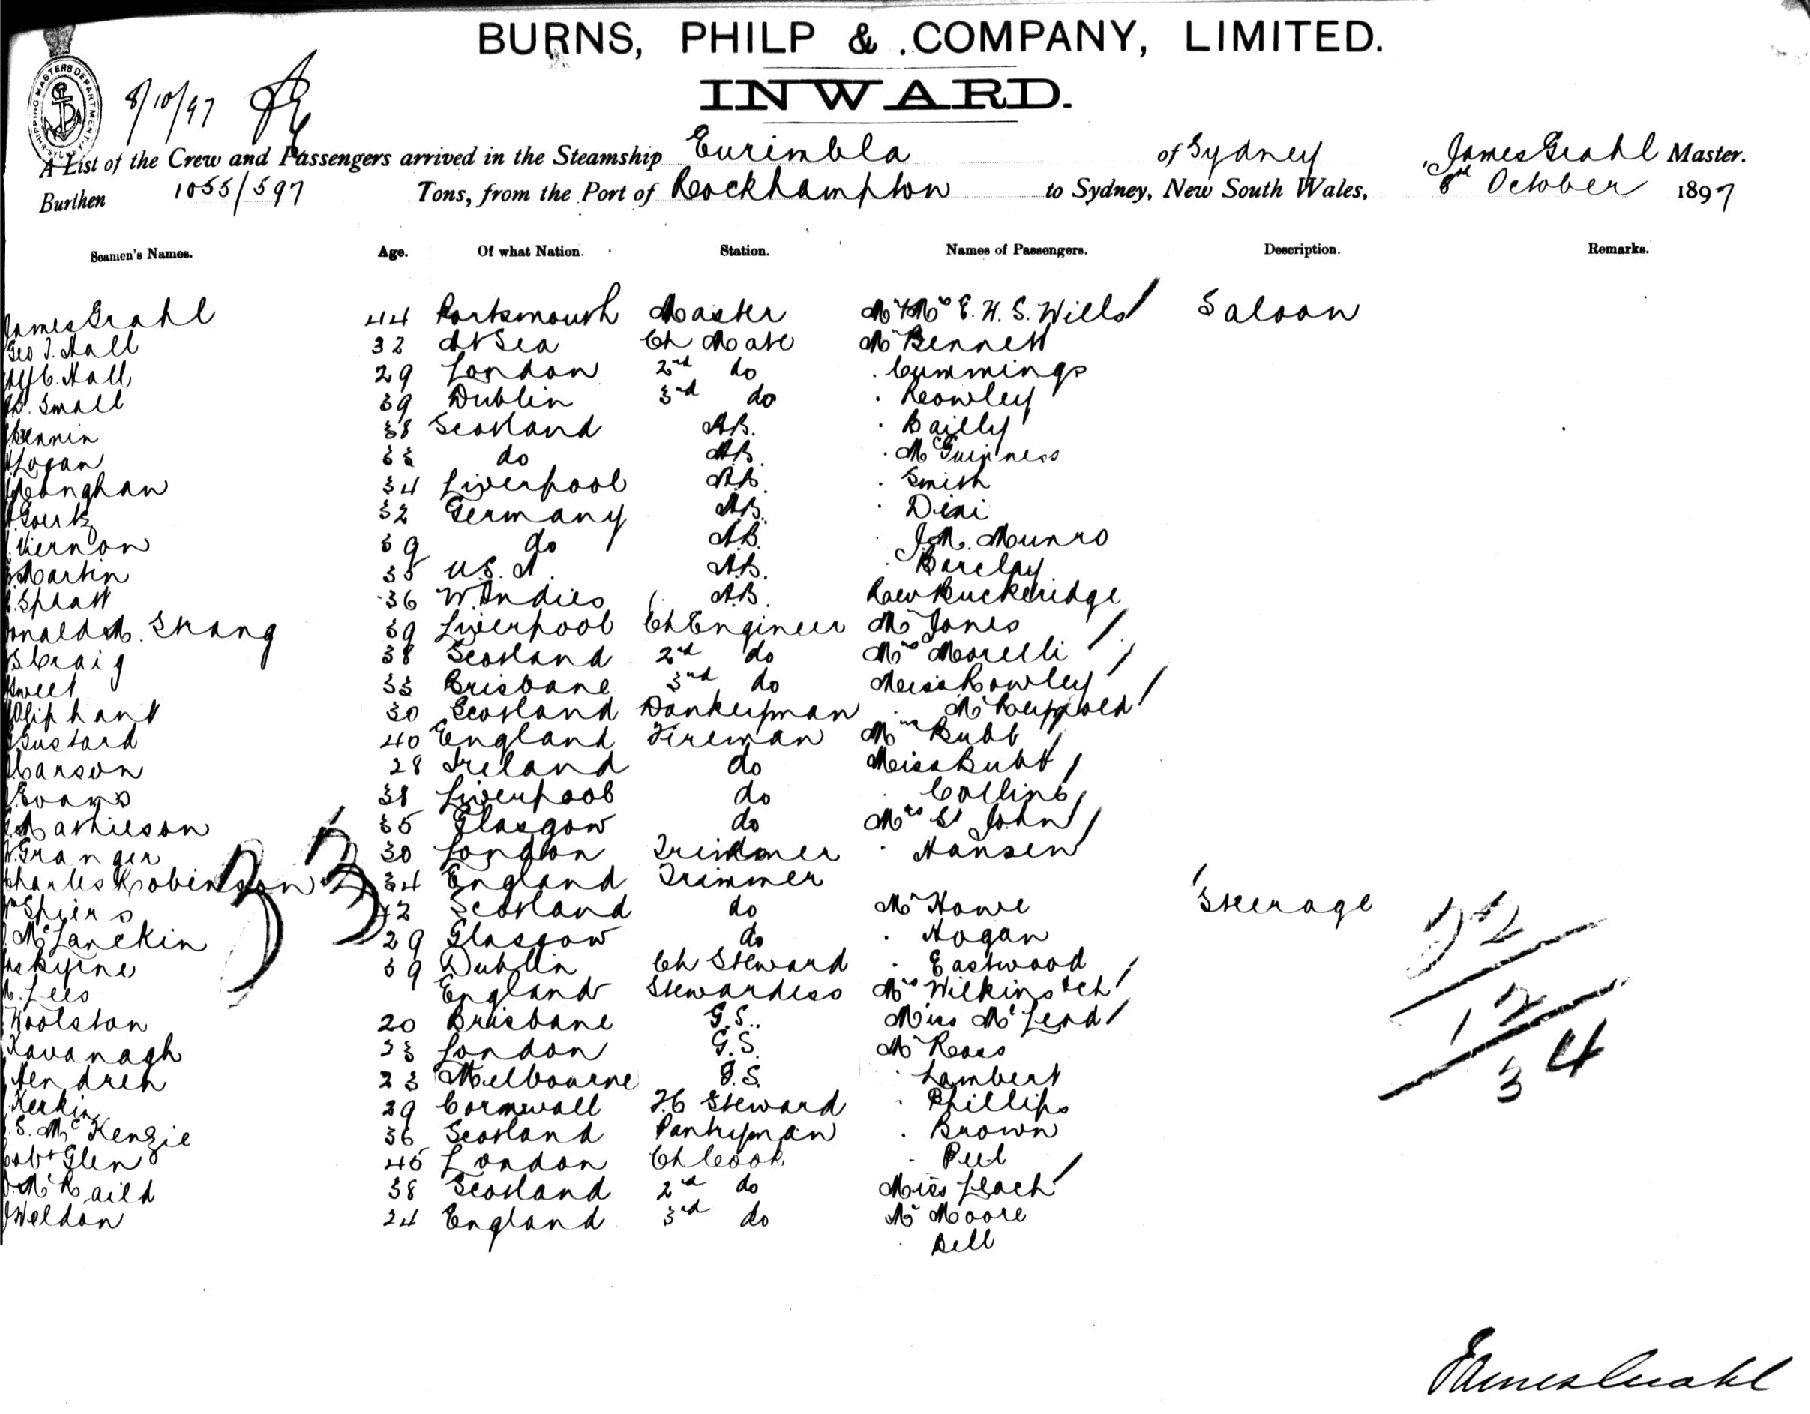 BURNS, PHILP & COMPANY, LIMITED.
INWARD.
8/10/97
A List of the Crew and Passengers arrived in the Steamship Eurimbla of Sydney James Grahl Master.
Burthen 1055/597 Tons, from the Port of Rockhampton to Sydney, New South Wales, 8th October 1897
Seamen's Names. Age. Of what Nation. Station. Names of Passengers. Description. Remarks.
James Grahl 44 Portsmouth Master Mr & Mrs E. H. S. Wills Saloon
Geo J. Hall 32 At Sea Ch Mate Mr Bennett
Hall 29 London 2nd do Cummings
Small 39 Dublin 3rd do Rowley
38 Scotland AB. Bailly
Logan 33 do AB. McGuinness
Monghan 34 Liverpool AB. Smith
Goertz 32 Germany AB. Dini
Viernon 39 do AB. J. M. Munro
Martin 35 U.S.A. AB. Barclay
Spratt 36 W. Indies AB. Rev Buckeridge
Donald M. Strang 39 Liverpool Ch Engineer Mr Jones
Craig 38 Scotland 2nd do Mrs Morelli
Sweet 33 Brisbane 3rd do Miss Rowley
Oliphant 30 Scotland Donkeyman Mr
Bustard 40 England Fireman Mrs Bubb
Carson 28 Ireland do Miss Bubb
Evans 38 Liverpool do Collins
Mathieson 35 Glasgow do Mrs St John
Granger 30 London Trimmer Hansen
Charles Robinson 34 England Trimmer
Spiers 42 Scotland do Mr Howe Steerage
McLanckin 29 Glasgow do Hogan
Erskine 39 Dublin Ch Steward Eastwood
Lees England Stewardess Mrs Wilkins & ch
Woolston 20 Brisbane G.S. Miss McLeod
Kavanagh 23 London G.S. Mr Ross
Hendren 23 Melbourne G.S. Lambert
Kerkin 29 Cornwall F.C Steward Phillips
S. McKenzie 36 Scotland Pantryman Brown
Robt Glen 45 London Ch Cook Peel
McRaild 38 Scotland 2nd do Miss Leach
Weldon 24 England 3rd do Mr Moore
Bell
33
22
12
34
James Grahl